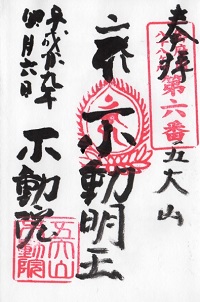 奉拝
第六番
五大山
不動明王
平成廿九年
四月六日
不動院
五大山
不動院